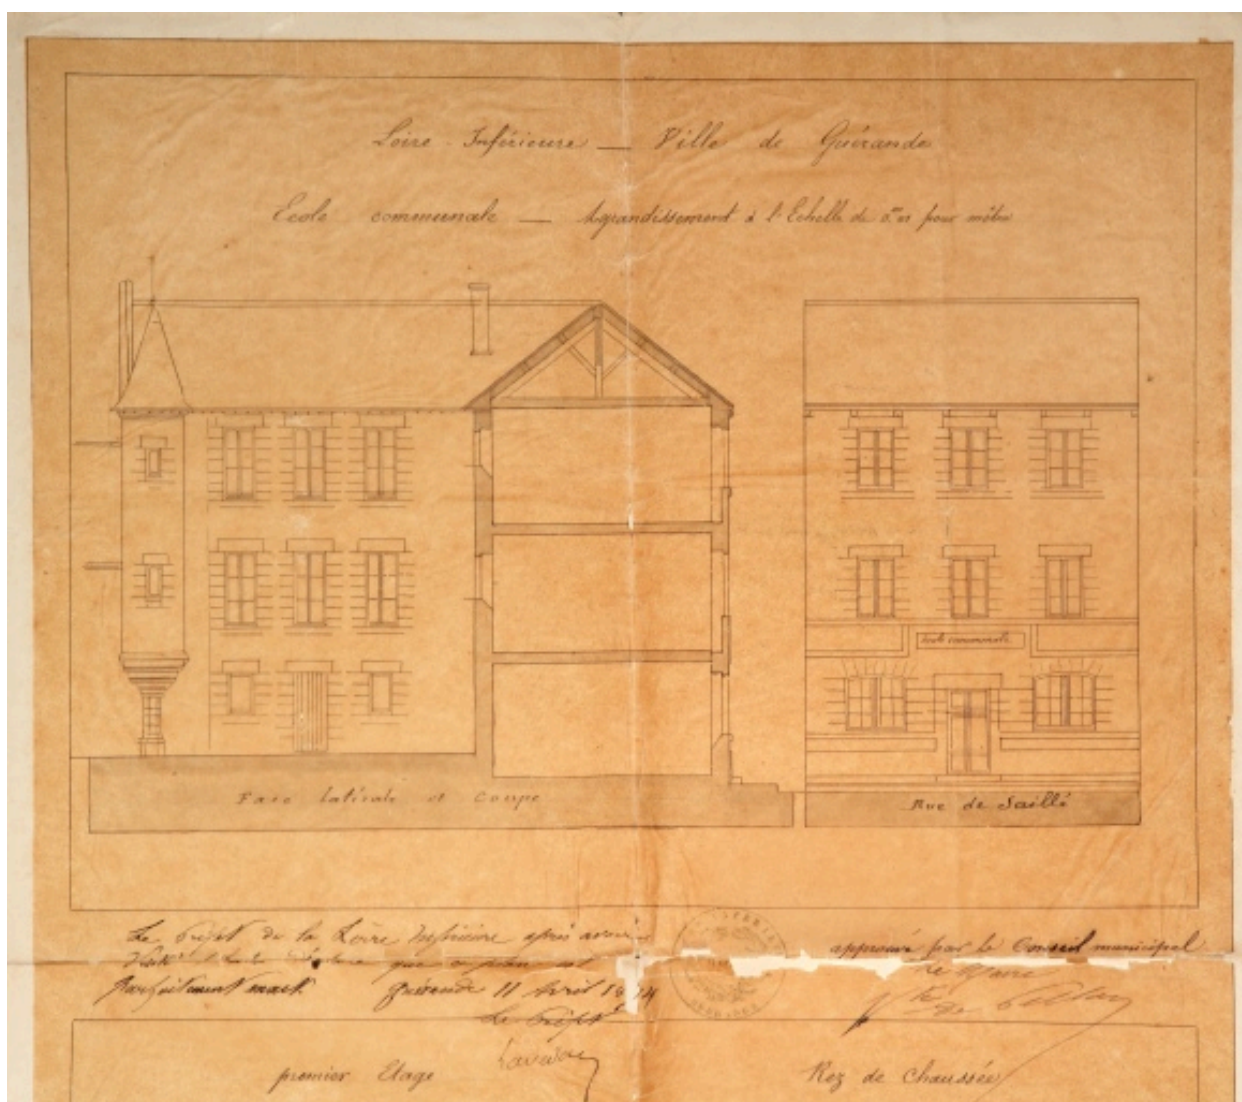 Loire-Inférieure — Ville de Guérande
Ecole communale — Agrandissement à l'Echelle de 0.m01 pour mètre
Ecole communale
Face latérale et Coupe
Rue de Saillé
Le Préfet de la Loire Inférieure après avoir
que ce plan est
Parfaitement exact. Guérande 11 Avril
Le Préfet
approuvé par le Conseil municipal
Le Maire
premier Etage
Rez de Chaussée